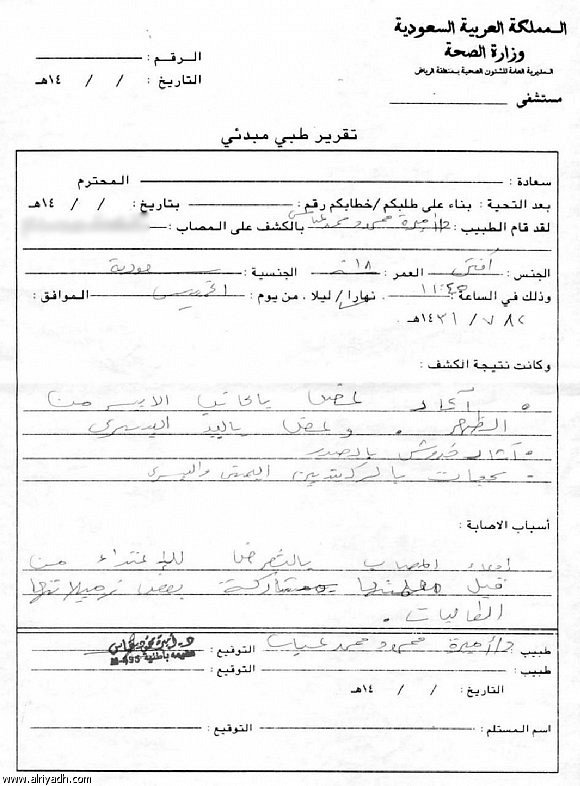 المملكة العربية السعودية
وزارة الصحة
المديرية العامة للشئون الصحية بمنطقة الرياض
مستشفى
الرقم :
التاريخ : / / ١٤هـ
تقرير طبي مبدئي
سعادة : المحترم
بعد التحية : بناء على طلبكم / خطابكم رقم : بتاريخ : / / ١٤هـ
لقد قام الطبيب : د/ أميرة محمود محمد عباس بالكشف على المصاب :
الجنس : أنثى العمر : ١٨ سنة الجنسية : سعودية
وذلك في الساعة ١١:٤٥ نهارا / ليلا ، من يوم : الخميس الموافق :
/ ٧ / ١٤٣١هـ
وكانت نتيجة الكشف :
آثار لعض بالجانب الايسر من
الظهر . و لعض باليد اليسرى
آثار خدوش بالصدر
- سحجات بالركبتين اليمنى واليسرى
أسباب الاصابة :
ادعاء المصاب بالتعرض للإعتداء من
قبل معلمتها بمشاركة بعض زميلاتها
الطالبات .
طبيب : د/ أميرة محمود محمد عباس التوقيع :
د. أميرة محمود عباس
مقيمه باطنية
M-495
طبيب : التوقيع :
التاريخ : / / ١٤هـ
اسم المستلم : التوقيع :
www.alriyadh.com